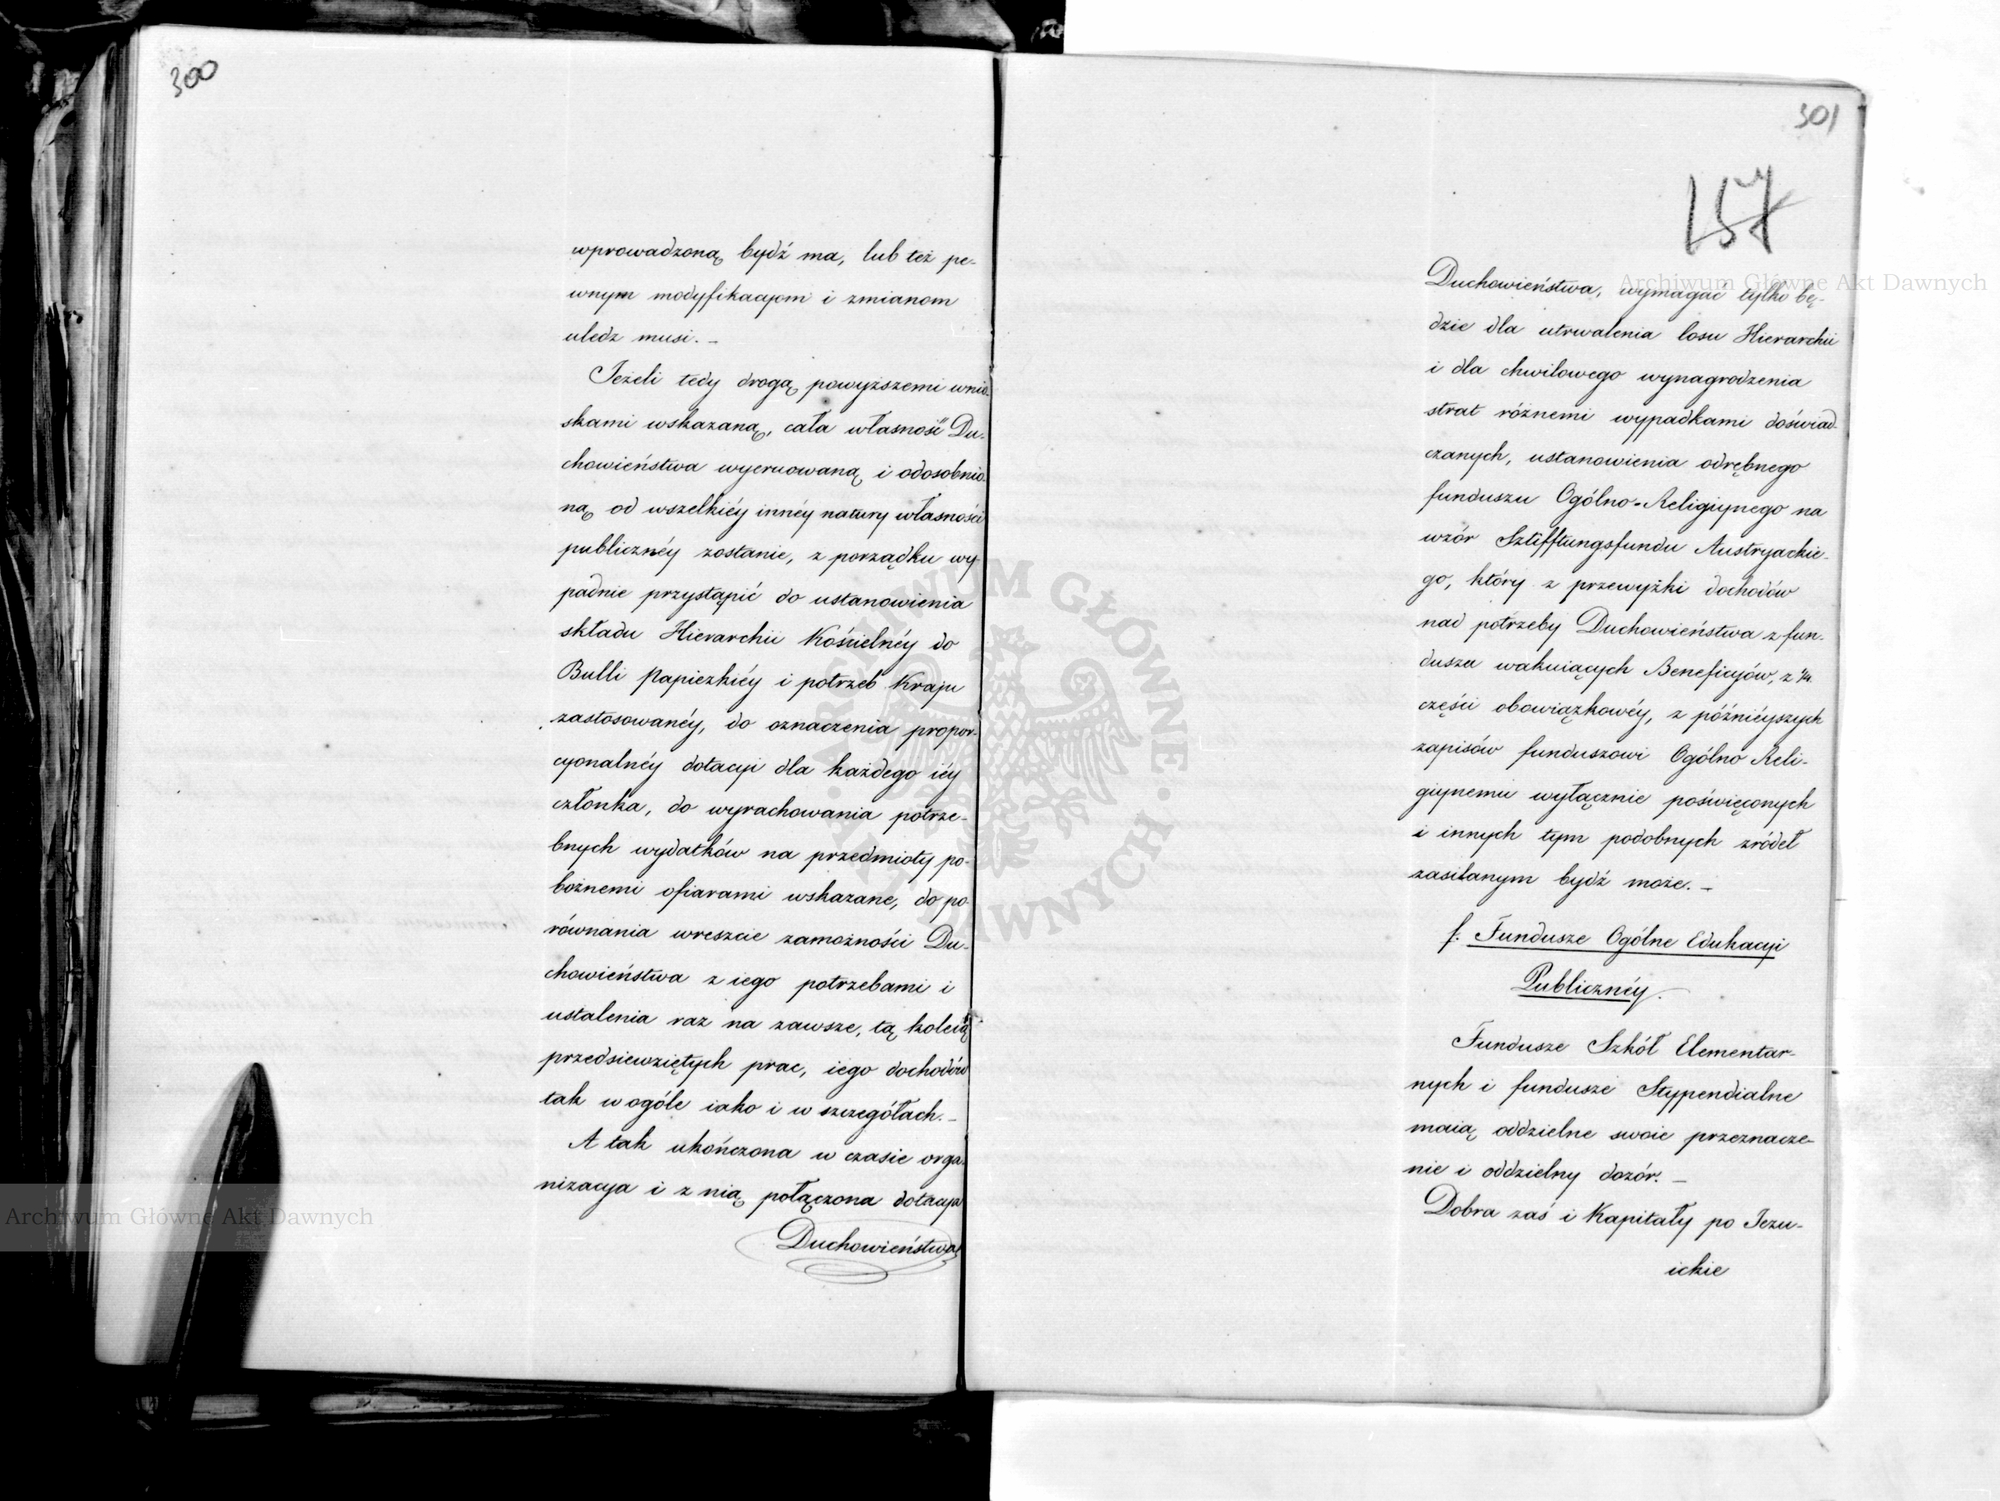 300
wprowadzoną bydź ma, lub też pe-
wnym modyfikacyom i zmianom
uledz musi. –
Jeżeli tedy drogą powyższemi wnio-
skami wskazaną, cała własność Du-
chowieństwa wyeruowaną i odosobnio-
ną od wszelkiéy innéy natury własności
publicznéy zostanie, z porządku wy-
padnie przystąpić do ustanowienia
składu Hierarchii Kościelnéy do
Bulli Papiezkiéy i potrzeb Kraju
zastosowanéy, do oznaczenia propor-
cyonalnéy dotacyi dla każdego iéy
członka, do wyrachowania potrze-
bnych wydatków na przedmioty po-
bożnemi ofiarami wskazane, do po-
równania wreszcie zamożności Du-
chowieństwa z iego potrzebami i
ustalenia raz na zawsze, tą koleią
przedsiewziętych prac, iego dochodów
tak w ogóle iako i w szczegółach. –
A tak ukończona w czasie orga-
nizacya i z nią połączona dotacya
Duchowieństwa
301
157
Duchowieństwa, wymagać tylko bę-
dzie dla utrwalenia losu Hierarchii
i dla chwilowego wynagrodzenia
strat różnemi wypadkami doświad-
czanych, ustanowienia odrębnego
funduszu Ogólno-Religiynego na
wzór Sztifftungsfundu Austryackie-
go, który z przewyżki dochodów
nad potrzeby Duchowieństwa z fun-
dusza wakuiących Beneficyów, z
części obowiązkowéy, z późniéyszych
zapisów funduszowi Ogólno Reli-
giynemu wyłącznie poświęconych
i innych tym podobnych zródeł
zasilanym bydź może. –
f. Fundusze Ogólne Edukacyi
Publicznéy.
Fundusze Szkół Elementar-
nych i fundusze Stypendialne
maią oddzielne swoie przeznacze-
nie i oddzielny dozór. –
Dobra zaś i Kapitały po Jezu-
ickie
Archiwum Główne Akt Dawnych
Archiwum Główne Akt Dawnych
ARCHIWUM GŁÓWNE AKT DAWNYCH